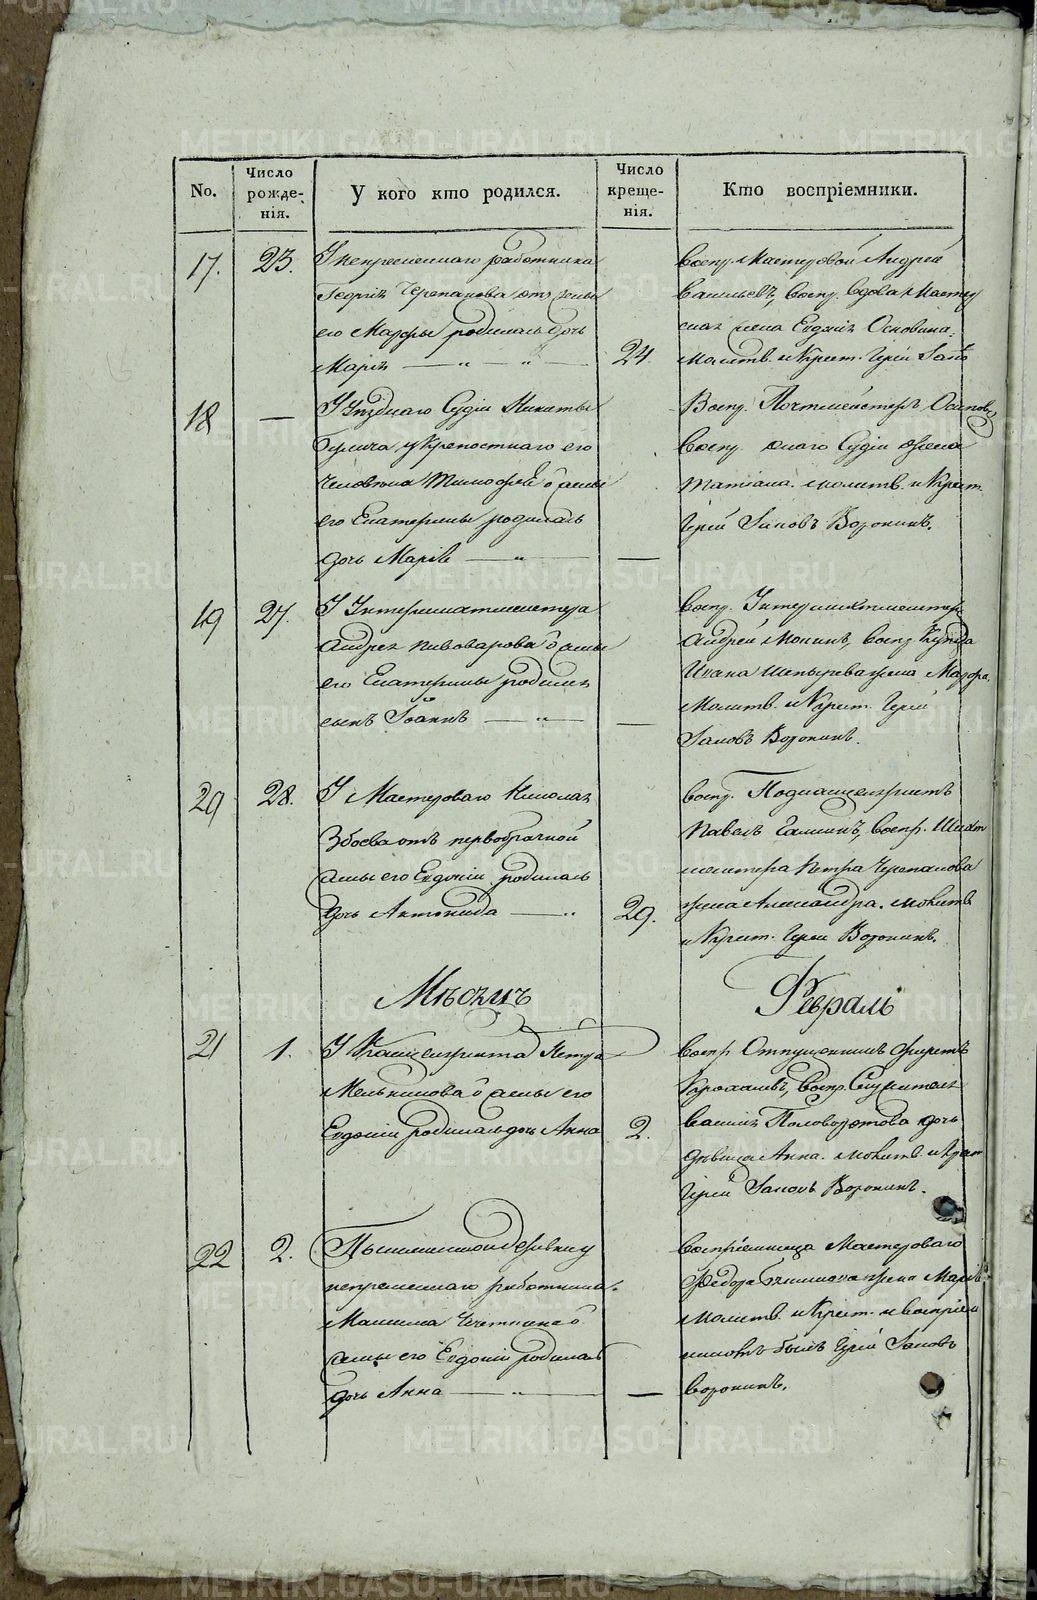 No.
Число рожде-
нія.
У кого кто родился.
Число креще-
нія.
Кто воспріемники.
17. 23. У непременнаго работника
Георгія Черепанова отъ жены
его Марфы родилась дочь
Марія — „ — „ —
24.
Воспр. Мастеровой Андрей
Васильевъ, воспр. вдова
жена Евдокія
молитв. и крест. Іерей Іаковъ
18 — У Уезднаго Судіи Никиты
у крепостнаго его
человека Тимофея о жены
его Екатерины родилась
дочь Марія — „ —
—
Воспр. Почтмейстеръ Осиповъ
Воспр. онаго Судіи жена
Татіана. молитв. и крест.
Іерей Іаковъ Воронинъ.
19 27. У Унтершихтмейстера
Андрея Пивоварова о жены
его Екатерины родился
сынъ Іоаннъ — „ —
—
Воспр. Унтершихтмейстеръ
Андрей Мокинъ, воспр. Купца
Ивана жена Марфа.
Молитв. и Крест. Іерей
Іаковъ Воронинъ.
20 28. У Мастероваго Николая
Збоева отъ первобрачной
жены его Евдокіи родилась
дочь Антонида — „
29.
воспр. Подканцеляристъ
Павелъ Галкинъ, воспр. Шихт
мейстера Петра Черепанова
жена Александра. молитв.
и Крест. Іерей Воронинъ.
Месяцъ Февраль
21 1. У Канцеляриста Петра
Мельникова о жены его
Евдокіи родилась дочь Анна
2.
воспр.
воспр. Служителя
Василія дочь
девица Анна. молитв. и Крест
Іерей Іаковъ Воронинъ.
22 2. Пышминской деревни у
непременнаго работника
Максима о
жены его Евдокіи родилась
дочь Анна — „ —
—
Воспріемница Мастероваго
Федора жена Марія
Молитв. и Крест. и воспріем
никомъ былъ Іерей Іаковъ
Воронинъ.
METRIKI.GASO-URAL.RU